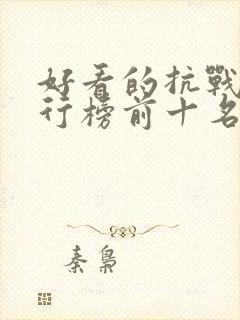 好看的抗戰
行榜前十名
秦梟